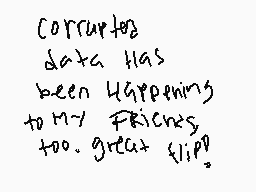 corrupted
data Has
been Happening
to my FRiends
too. great flip!